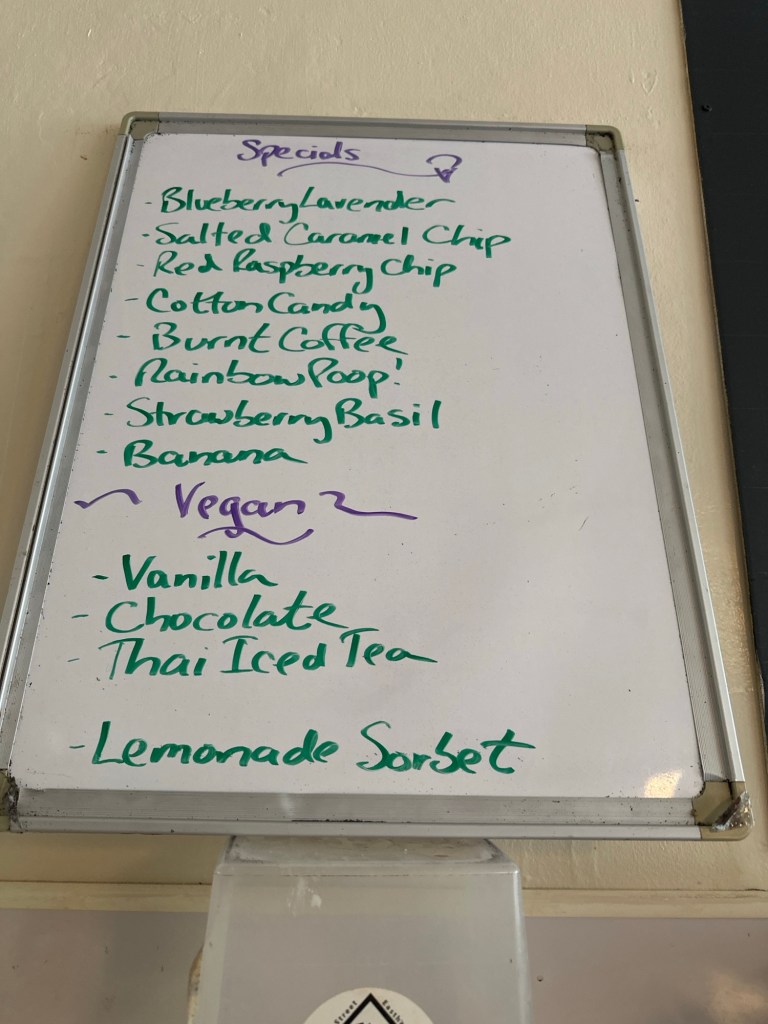 Specials
- Blueberry Lavender
- Salted Caramel Chip
- Red Raspberry Chip
- Cotton Candy
- Burnt Coffee
- Rainbow Poop!
- Strawberry Basil
- Banana
~ Vegan ~
- Vanilla
- Chocolate
- Thai Iced Tea
- Lemonade Sorbet
Street